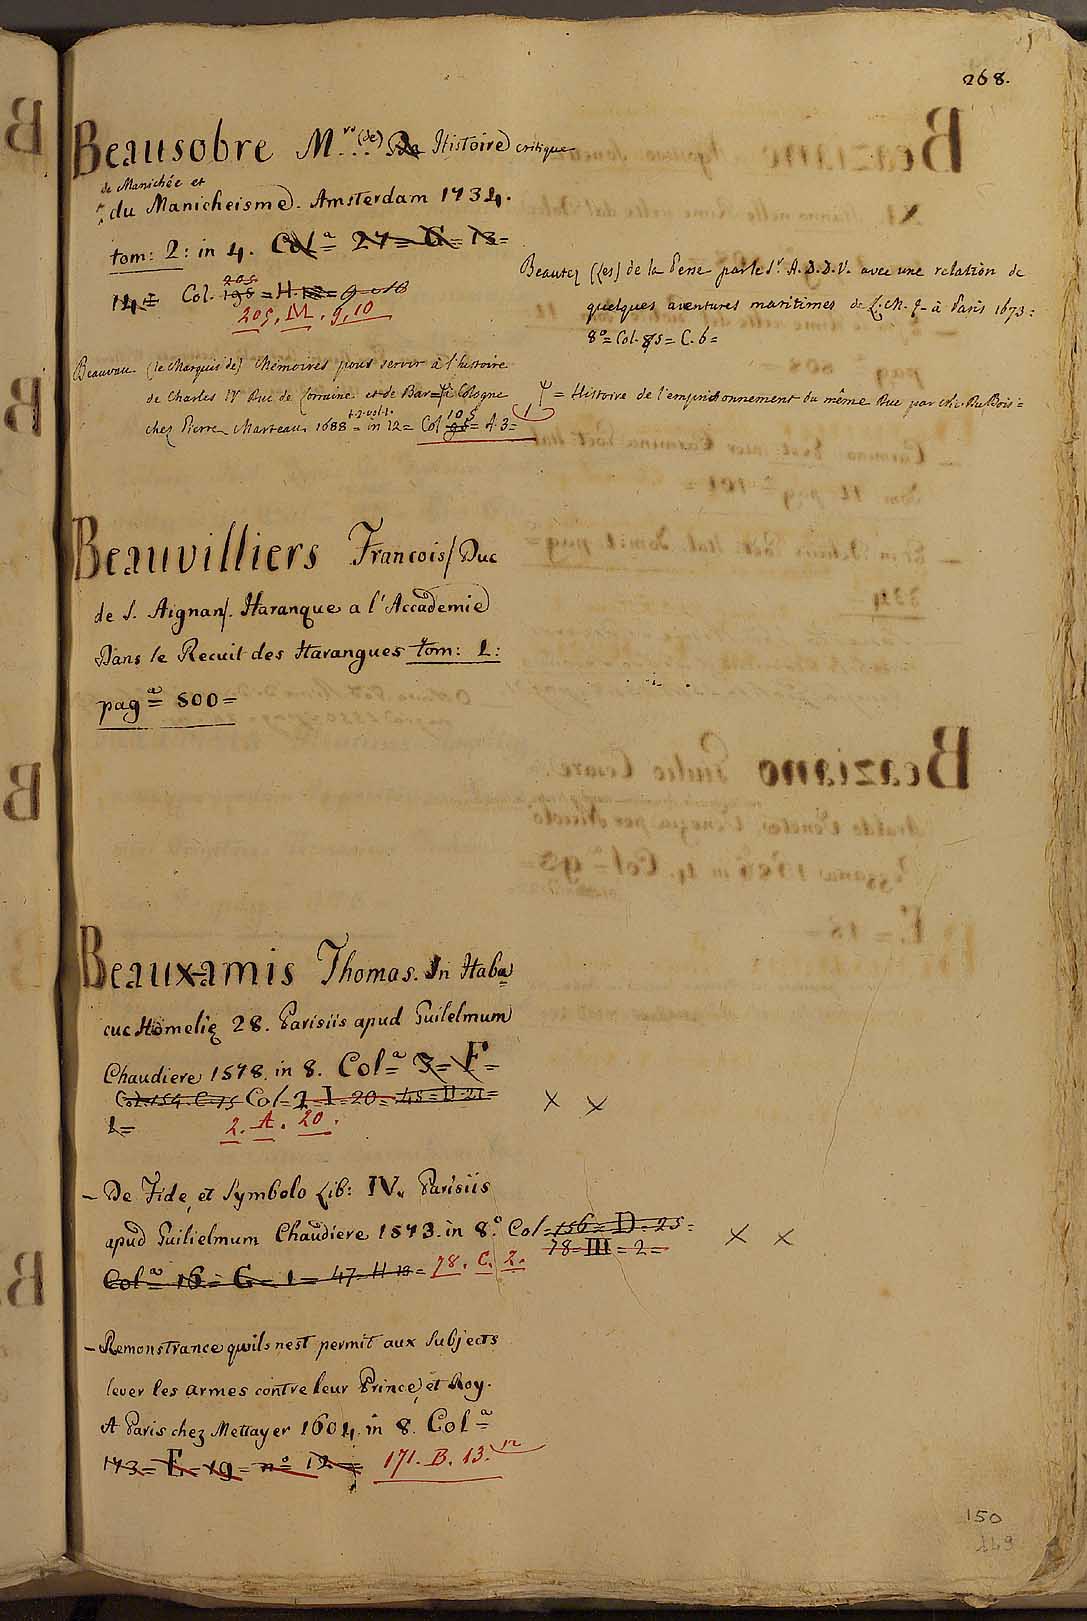 268.
Beausobre M.rs (de) De Histoire critique
de Manichée et
du Manicheisme. Amsterdam 1734.
tom: 2: in 4. Col.a 27 = G = 13 =
205
14 = Col. 195 = H. 12 = 9 e 10
205. M. 9. 10
Beautez (Les) de la Perse par le Sr. A. D. D. V. avec une relation de
quelques aventures maritimes de L. M. P. à Paris 1673:
8o = Col. 85 = C. 6 =
Beauvau (le Marquis de) Mémoires pour servir à l'histoire
de Charles IV Duc de Lorraine et de Bar = à Cologne
chez Pierre Marteau 1688 = in 12 = Col 98 = A. 3 =
t. 2. vol. 1. 105 1
Ψ = Histoire de l'emprisonnement du même Duc par Mr. Du Bois =
Beauvilliers Francois / Duc
de S. Aignan /. Haranque a l'Accademie
Dans le Recuit des Harangues tom: 1:
pag.a = 500 =
Beaux-amis Thomas. In Haba
cuc Homelię 28. Parisiis apud Guilelmum
Chaudiere 1578. in 8. Col.a 3 = F =
Col. 154. C. 15 Col = 2 I = 20 = 48 = D 21 =
1 = 2. A. 20. x x
- De Fide, et Symbolo Lib: IV. Parisiis
apud Guilielmum Chaudiere 1573. in 8.o Col = 156 = D = 25 =
78 = III = 2 = x x
Col.a 16 = G = 1 = 47 = H 18 = 78. C. 2.
- Remonstrance qu'ils nest permit aux Subjects
lever les armes contre leur Prince, et Roy.
A Paris chez Mettayer 1604. in 8. Col.a
173 = E = 19 = no 12 = 171. B. 13. 12
150
149